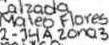 Calzada
Mateo Flores
2-14 A zona 5